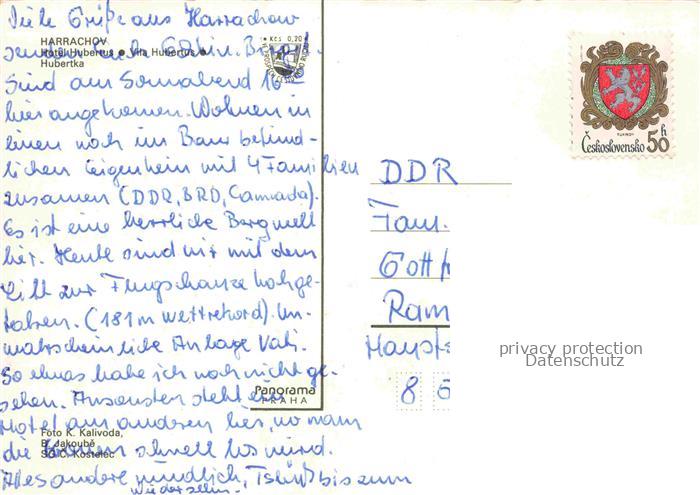 Viele Grüße aus Harrachow
HARRACHOV
Hotel Hubertus ● Vila Hubertus ●
Hubertka
Kčs 0,20
Sind am Sonnabend 16
hier angekommen. Wohnen in
einen noch im Bau befind-
lichen Eigenheim mit 4 Familien
zusammen (DDR, BRD, Cannada).
Es ist eine herrliche Bergwelt
hier. Heute sind wir mit dem
Lift zur Flugschanze hochge-
fahren. (181m Weltrekord). Un-
wahrscheinliche Anlage Vati.
So etwas habe ich noch nicht ge-
sehen. Ansonsten steht ein
Hotel am anderen hier, wo man
die Kronen schnell los wird.
Alles andere mündlich, Tschüß bis zum
Wiedersehn.
Panorama
PRAHA
Foto K. Kalivoda,
B. Jakoubě
SČ C. Kostelec
Československo 50 h
DDR
Fam.
Gott
Ram
Haupts
8
privacy protection
Datenschutz